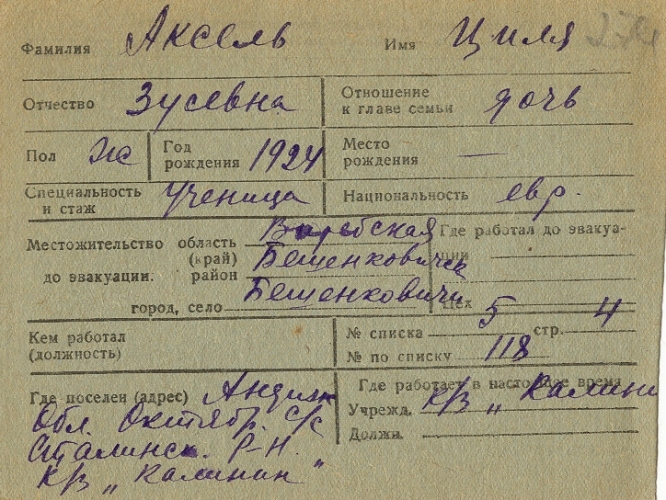 Фамилия Аксель Имя Циля
Отчество Зусевна Отношение к главе семьи дочь
Пол ж Год рождения 1924 Место рождения —
Специальность и стаж ученица Национальность евр.
Местожительство область Витебская Где работал до эвакуа-
(край) ции
до эвакуации. район Бешенковичск
город, село Бешенковичи Цех
Кем работал № списка 5 стр. 4
(должность) № по списку 118
Где поселен (адрес) Андиж Где работает в настоящее время
Обл. Октябр. с/с Учрежд. к/з „Калинин
Сталинск. Р-Н. Должн.
к/з „Калинин"